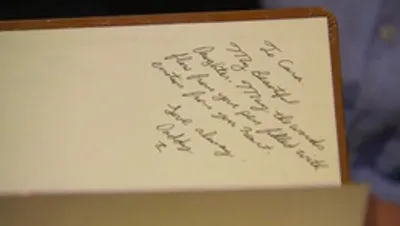 To Cara
My Beautiful
Daughter. May the words
flow from your pen filled with
from your heart.
Love always
Daddy